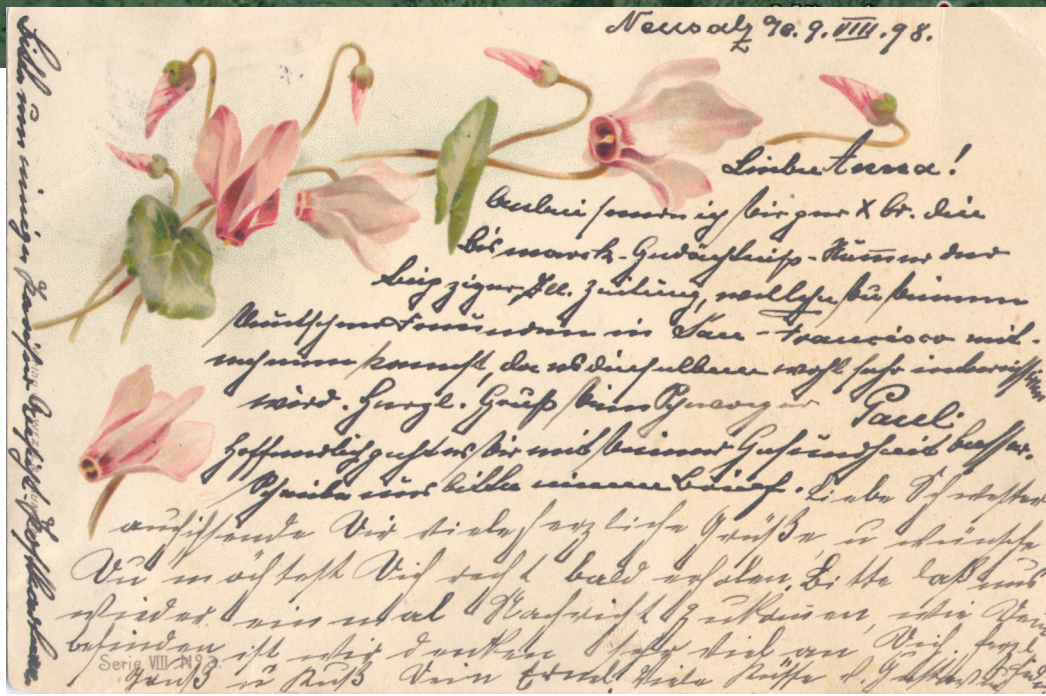 Neusalz a/O. 9.VIII.98.
Liebe Anna!
Anbei sende ich Dir per X Bd. die
Bismarck-Gedächtniß-Nummer der
Leipziger Ill. Zeitung, welche Du Deinen
Deutschen Freunden in San-Francisco mit-
nehmen kannst, da es dieselben wohl sehr interessiren
wird. Herzl. Gruß Dein Schwager Paul
Hoffentlich geht es Dir mit Deiner Gesundheit besser.
Schreibe uns bitte einen Brief. Liebe Schwester
auch ich sende Dir viele herzliche Grüße u wünsche
Du möchtest Dich recht bald erholen. Bitte laß uns
wieder einmal Nachricht zukommen, wie Dein
befinden ist wir denken sehr viel an Dich. herzl
Gruß u Kuß Dein Viele Küsse
Serie VIII Nº 3.